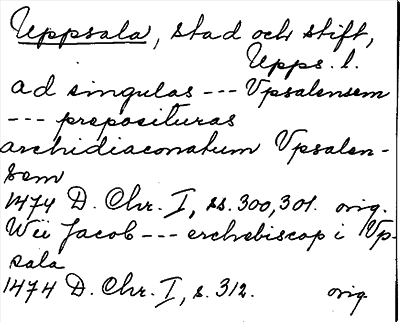 Uppsala, stad och stift,
Upps. l.
ad singulas --- Vpsalensem
--- preposituras
archidiaconatum Vpsalen-
sem
1474 D. Chr. I, ss. 300, 301. orig.
Wii Jacob --- erchebiscop i Vp-
sala
1474 D. Chr. I, s. 312. orig